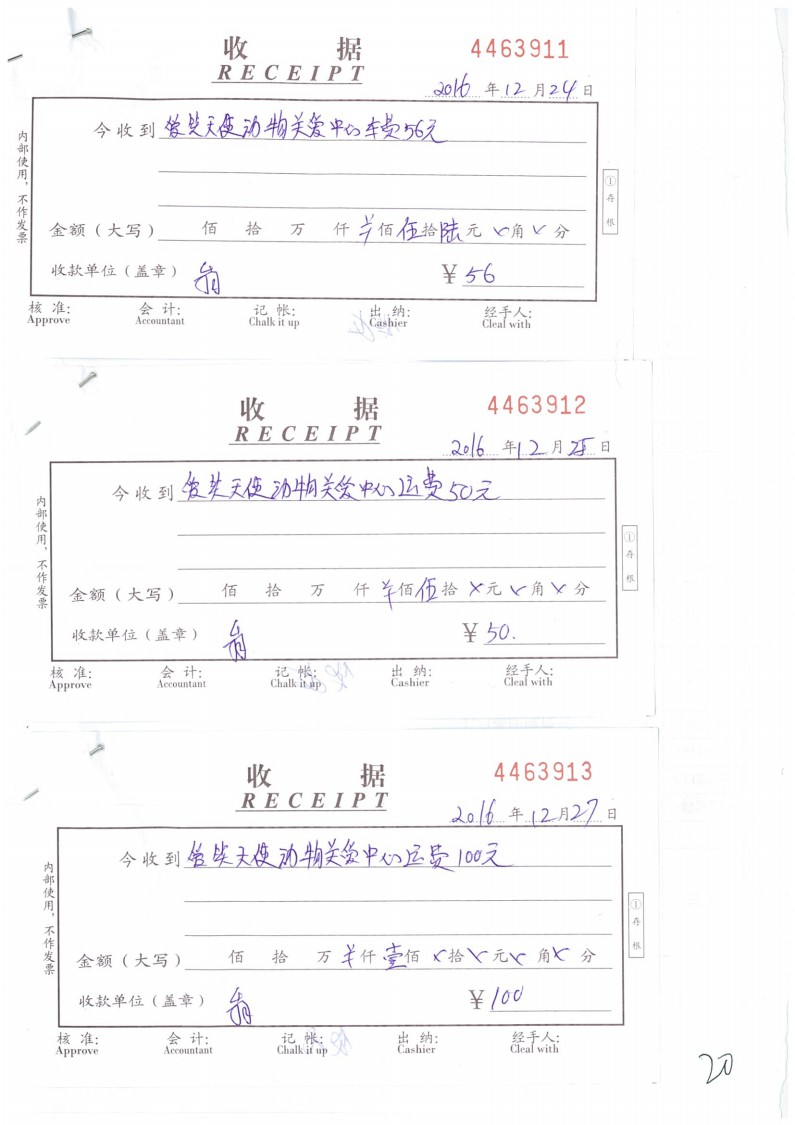 收 据
4463911
RECEIPT
2016 年 12 月 24 日
今收到 天使动物关爱中心车费56元
金额（大写） 佰 拾 万 仟 佰 伍 拾 陆 元 角 分
收款单位（盖章） ￥56
核 准: 会 计: 记 帐: 出 纳: 经手人:
Approve Accountant Chalk it up Cashier Cleal with
内部使用，不作发票
① 存 根
收 据
4463912
RECEIPT
2016 年 12 月 25 日
今收到 天使动物关爱中心运费50元
金额（大写） 佰 拾 万 仟 佰 伍 拾 × 元 × 角 × 分
收款单位（盖章） ￥50.
核 准: 会 计: 记 帐: 出 纳: 经手人:
Approve Accountant Chalk it up Cashier Cleal with
内部使用，不作发票
① 存 根
收 据
4463913
RECEIPT
2016 年 12 月 27 日
今收到 天使动物关爱中心运费100元
金额（大写） 佰 拾 万 仟 壹 佰 × 拾 × 元 × 角 × 分
收款单位（盖章） ￥100
核 准: 会 计: 记 帐: 出 纳: 经手人:
Approve Accountant Chalk it up Cashier Cleal with
内部使用，不作发票
① 存 根
20